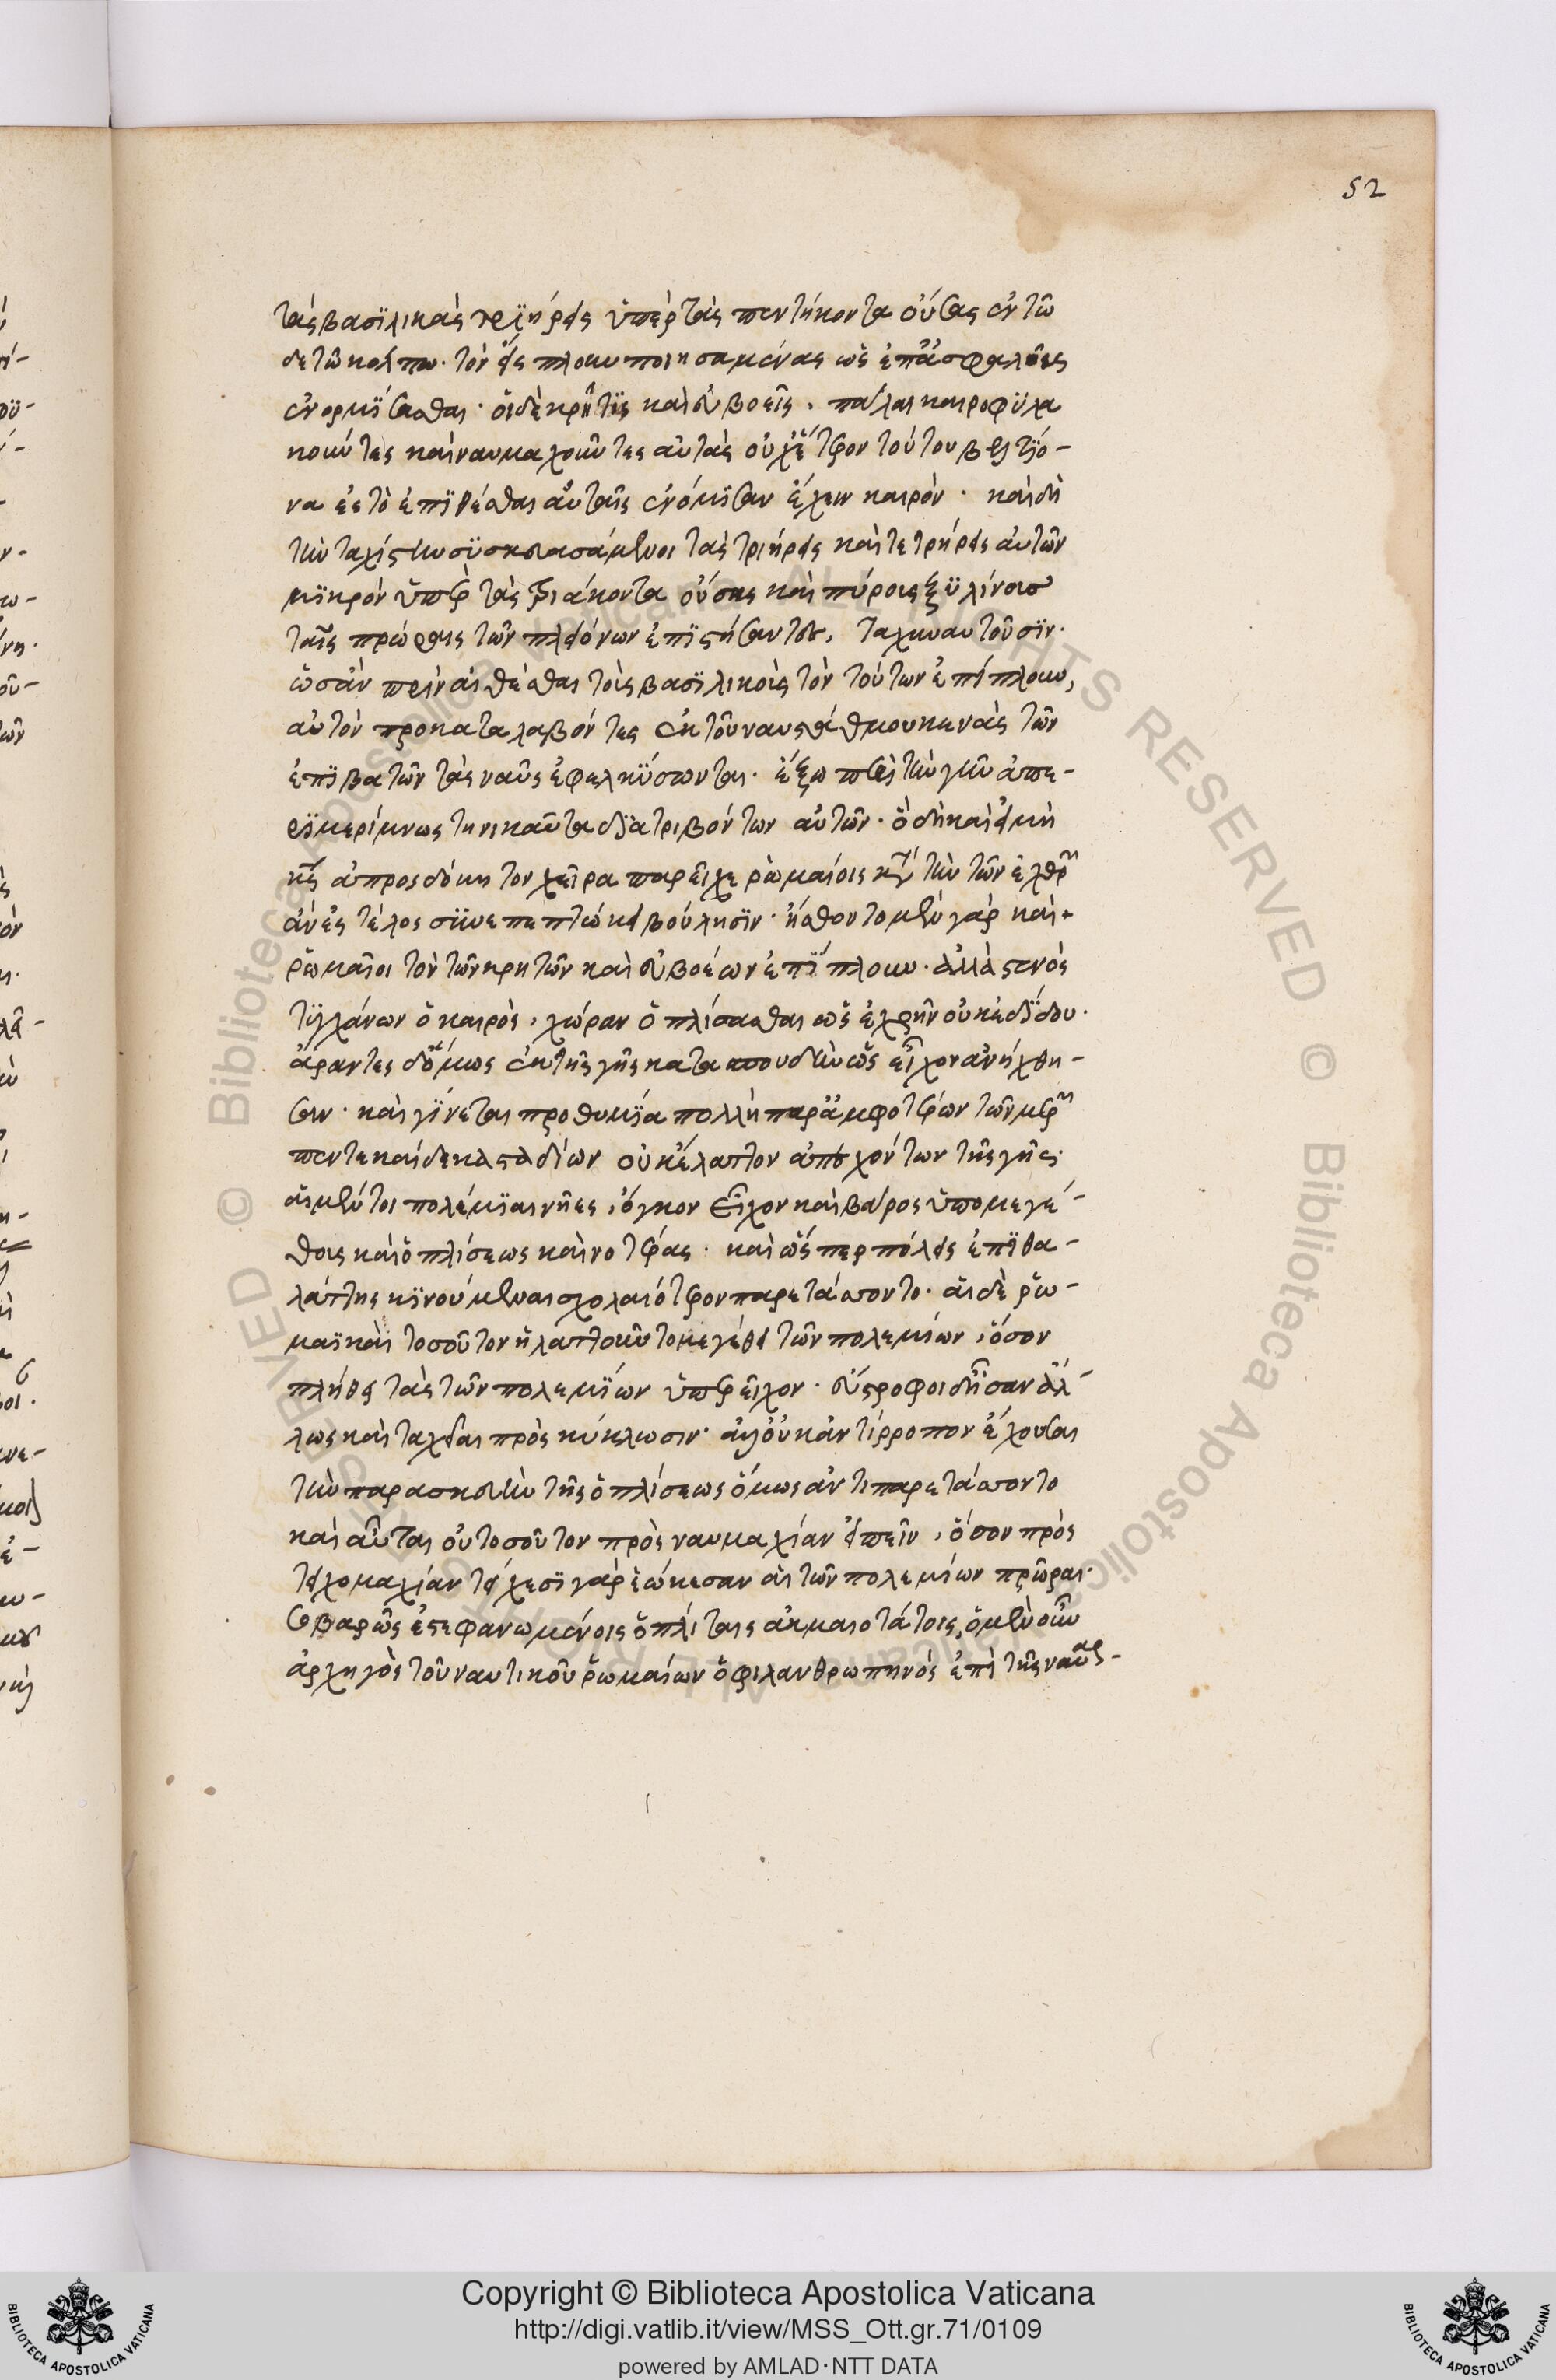 52
τὰς βασϊλικὰς τρϊήρεις ὑπὲρ τὰς πεντήκοντα οὔσας ἐν τῶ
δε τῶ κόλπω. τὸν εἰς πλουν ποιησαμένας ὡς ἐπ' ἀσφαλοῦς
ἐνορμϊσασθαι. οἱ δὲ κρῆτϊς καὶ εὐβοεῖς, πάλαι καιροφϋλα
κοῦντες καὶ ναυμαχοῦντες αὐτὰς οὐχ ἕτερον τούτου βελτϊό-
να ἐς τὸ ἐπϊθέσθαι αὐταῖς ἐνόμϊσαν ἔχειν καιρόν. καὶ δὴ
τὴν ταχίστην σϋσκευασάμενοι τὰς τριήρεις καὶ τετρήρεις αὐτῶν
μϊκρὸν ὑπὲρ τὰς τριάκοντα οὔσας καὶ πύροις ξϋλίνοισ
ταῖς πρώραις τῶν πλειόνων ἐπϊστήσαντες, ταχυναυτοῦσϊν.
ὡσὰν πρὶν αἰσθέσθαι τοὺς βασϊλικοὺς τὸν τούτων ἐπίπλουν,
αὐτὸν προκαταλαβόντες ἐκ τοῦ ναυστάθμου κενὰς τῶν
ἐπϊβατῶν τὰς ναῦς ἐφελκϋσωνται. ἔξω περὶ τὴν γῆν ἀπε-
ρϊμερίμνως τηνικαῦτα δϊατριβόντων αὐτῶν. ὃ δὴ καὶ εἰ μὴ
τις ἀπροσδόκητον χεῖρα παρεῖχε ρωμαίοις κατὰ τὴν τῶν ἐχθρῶν
ἂν ἐς τέλος σϋνεπεπτώκει βούλησϊν. ἤσθοντο μὲν γὰρ καὶ
ρωμαῖοι τὸν τῶν κρητῶν καὶ εὐβοέων ἐπϊπλουν. ἀλλὰ στενὸς
τϋγχάνων ὁ καιρὸς, χώραν ὁπλίσασθαι ὡς ἐχρῆν οὐκ ἐδϊδου.
ἄραντες δ' ὅμως ἐκ τῆς γῆς κατα σπουδὴν ὡς εἶχον ἀνήχθη-
σαν. καὶ γϊνεται προθυμϊα πολλὴ παρ' ἀμφοτέρων τῶν μερῶν
πεντεκαίδεκα σταδίων οὐκ ἔλαττον ἀπεχόντων τῆς γῆς.
αἱ μέντοι πολέμϊαι νῆες, ὄγκον εἶχον καὶ βάρος ὑπο μεγέ-
θους καὶ ὁπλίσεως καινοτέρας. καὶ ὥσπερ πόλεις ἐπϊ θα-
λάττης κϊνούμεναι σχολαιότερον παρετάσσοντο. αἱ δὲ ρω-
μαϊκαὶ τοσοῦτον ἠλαττοῦντο μεγέθει τῶν πολεμίων, ὅσον
πλήθει τὰς τῶν πολεμϊων ὑπερεῖχον. εὔστροφοι δ' ἦσαν ἄλ-
λως καὶ ταχεῖαι πρὸς κύκλωσιν. ἀλλ' οὐκ ἀντίρροπον ἔχουσαι
τὴν παρασκευὴν τῆς ὁπλίσεως ὅμως ἀντιπαρετάσσοντο
καὶ αὗται οὐ τοσοῦτον πρὸς ναυμαχίαν εἰπεῖν, ὅσον πρὸς
τειχομαχίαν τείχεσϊ γὰρ ἐῴκεσαν αἱ τῶν πολεμίων πρῶραι.
σοβαρῶς ἐστεφανωμένοις ὁπλίταις ἀκμαιοτάτοις, ὁ μὲν οὖν
ἀρχηγὸς τοῦ ναυτικοῦ ρωμαίων ὁ φιλανθρωπηνὸς ἐπὶ τῆς ναυαρ-
Copyright © Biblioteca Apostolica Vaticana
http://digi.vatlib.it/view/MSS_Ott.gr.71/0109
powered by AMLAD·NTT DATA